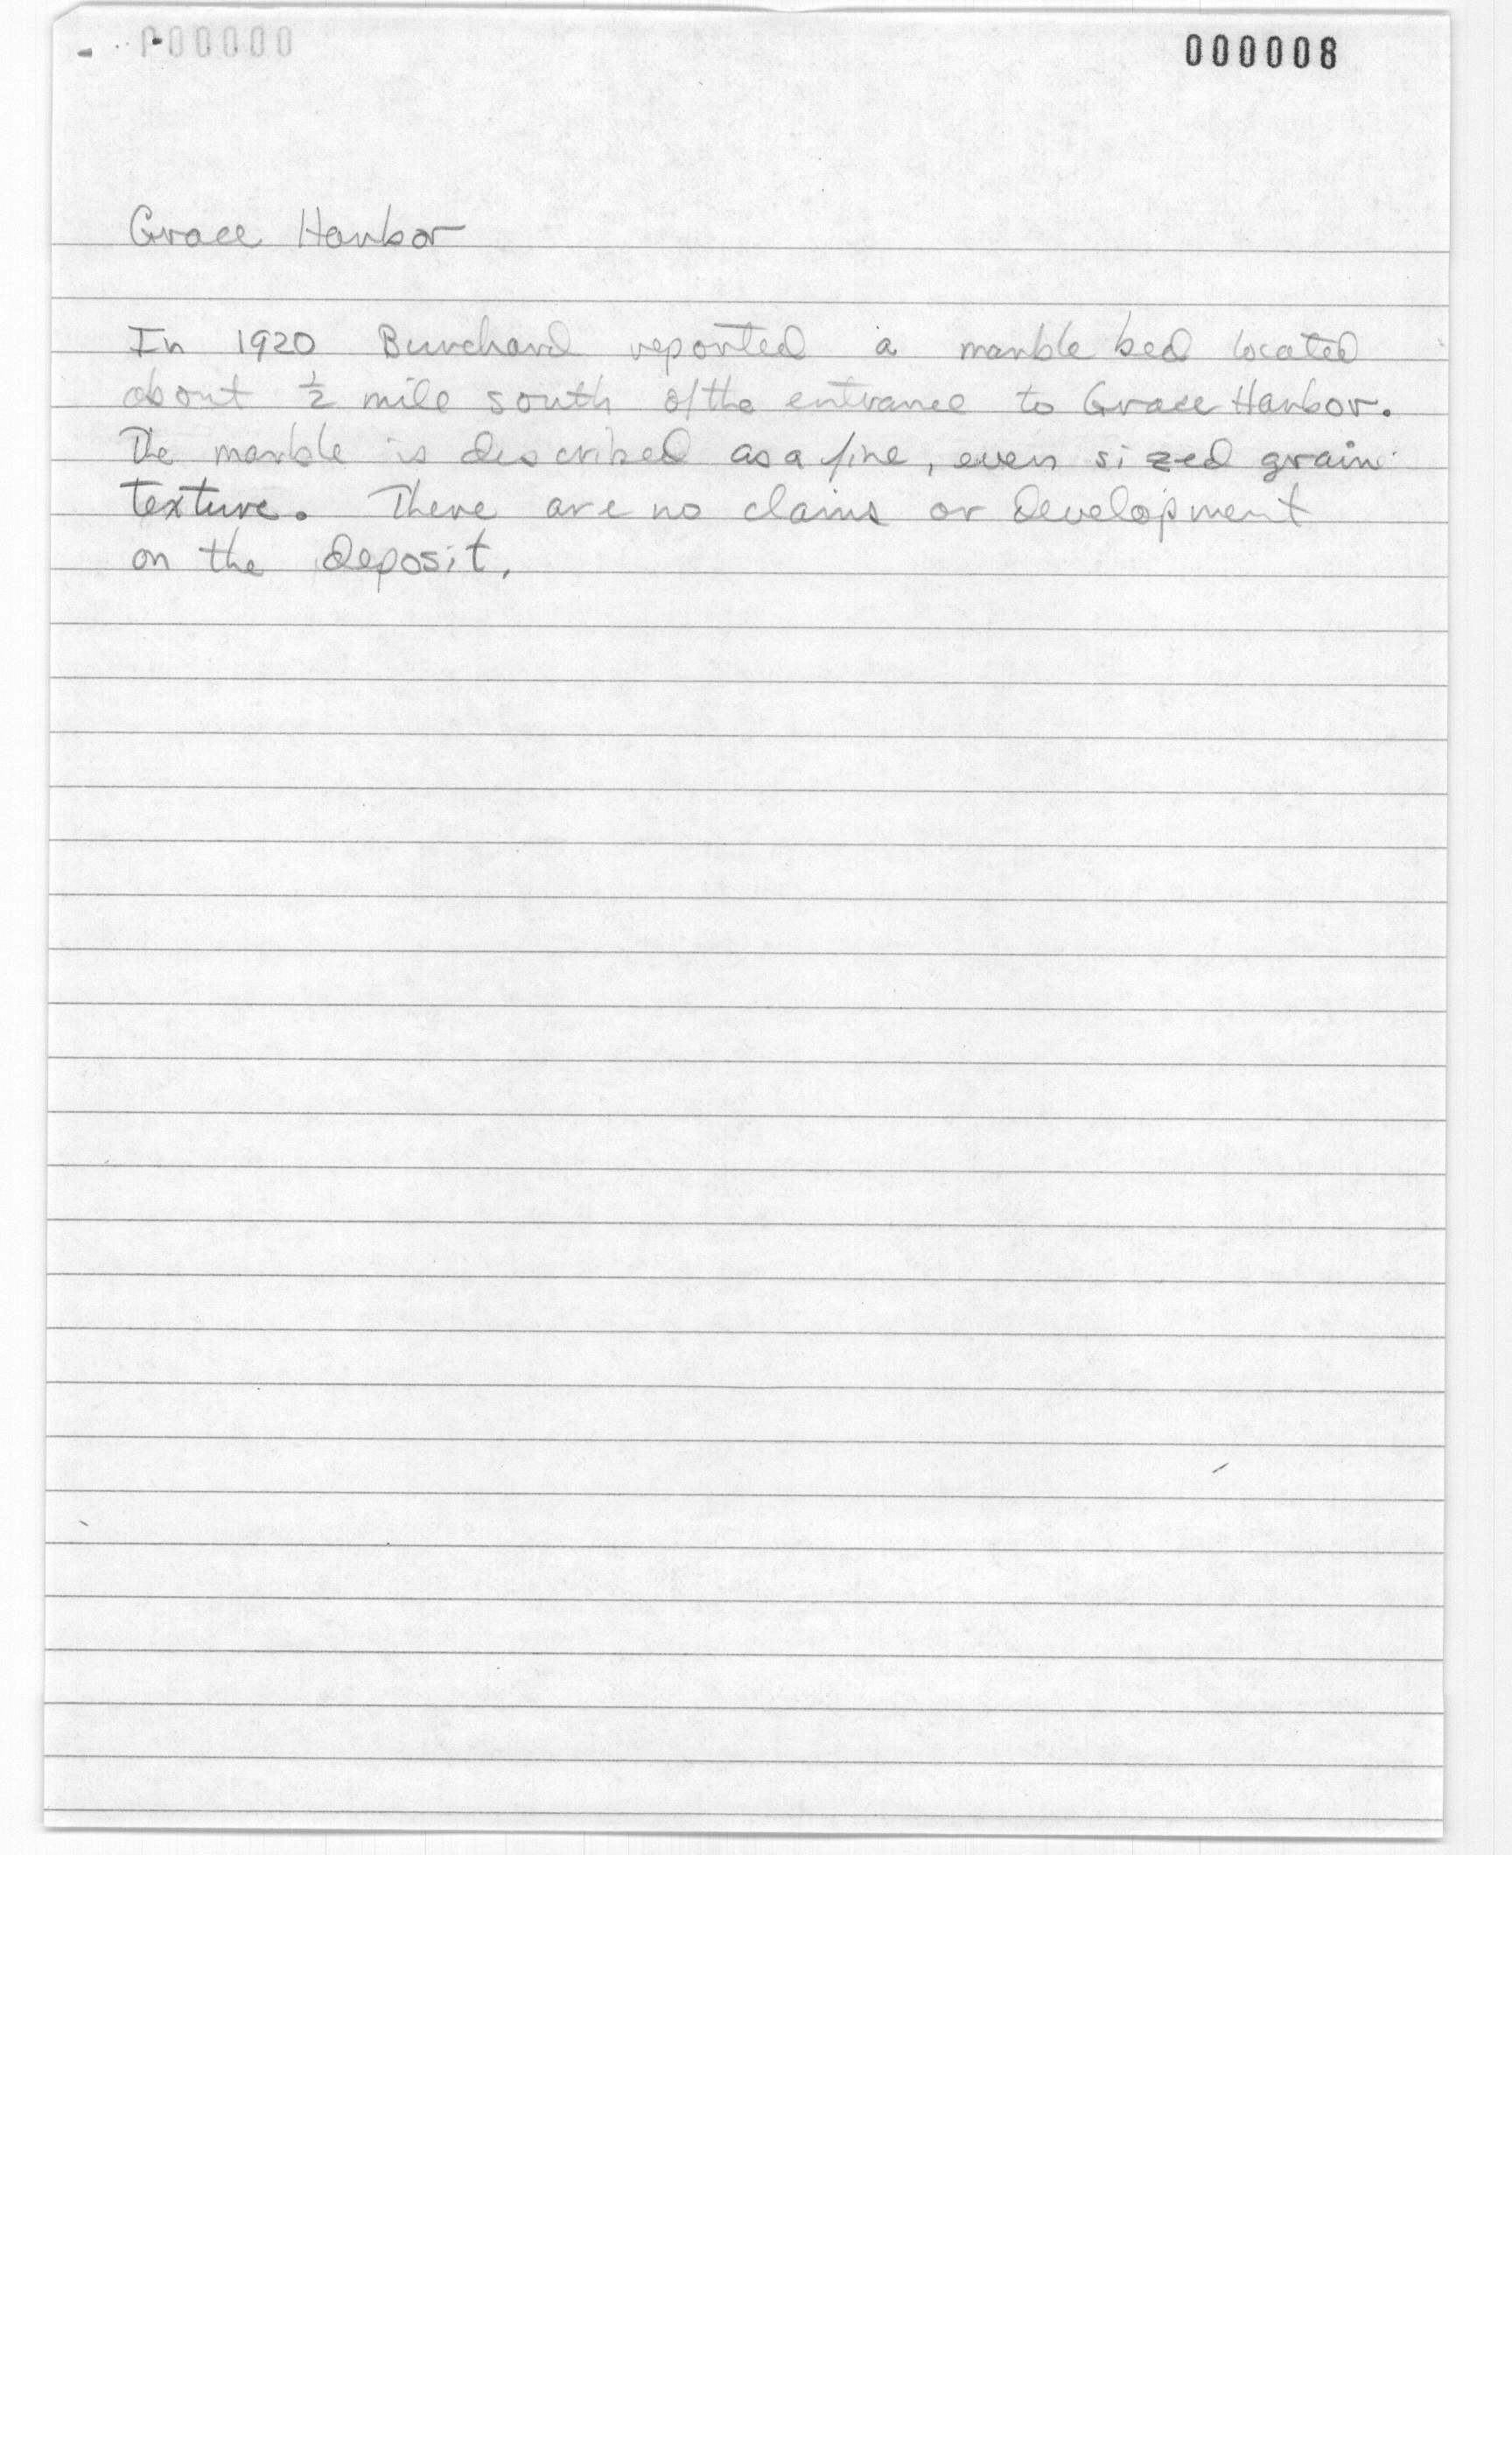 000000
000008
Grace Harbor
In 1920 Burchard reported a marble bed located
about ½ mile south of the entrance to Grace Harbor.
The marble is described as a fine, even sized grain
texture. There are no claims or development
on the deposit.